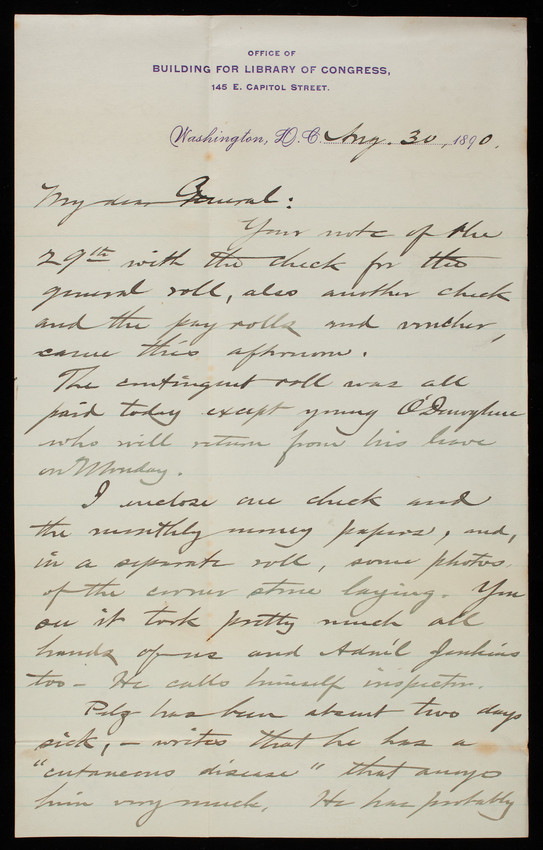 OFFICE OF
BUILDING FOR LIBRARY OF CONGRESS,
145 E. CAPITOL STREET.
Washington, D.C. Aug. 30, 1890.
My dear General:
Your note of the
29th with the check for the
general roll, also another check
and the pay rolls and voucher,
came this afternoon.
The contingent roll was all
paid today except young O'Donoghue
who will return from his leave
on Monday.
I enclose one check and
the monthly money papers, and,
in a separate roll, some photos.
of the corner stone laying. You
see it took pretty much all
hands of us and Adm'l Jenkins
too – He calls himself inspector.
Pelz has been absent two days
sick, – writes that he has a
"cutaneous disease" that annoys
him very much. He has probably